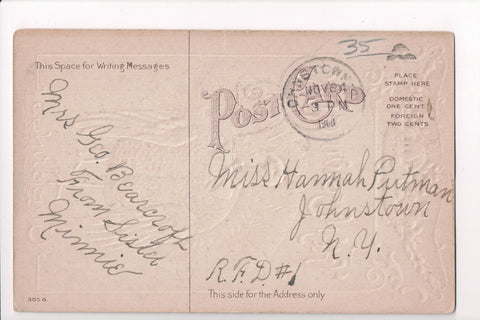 35
This Space for Writing Messages
POST CARD
NOV 24
3 PM
1908
PLACE
STAMP HERE
DOMESTIC
ONE CENT
FOREIGN
TWO CENTS
Mrs Geo. Bearcroft
From Sister
Minnie
Miss Hannah Putman
Johnstown
N.Y.
R.F.D. #1
This side for the Address only